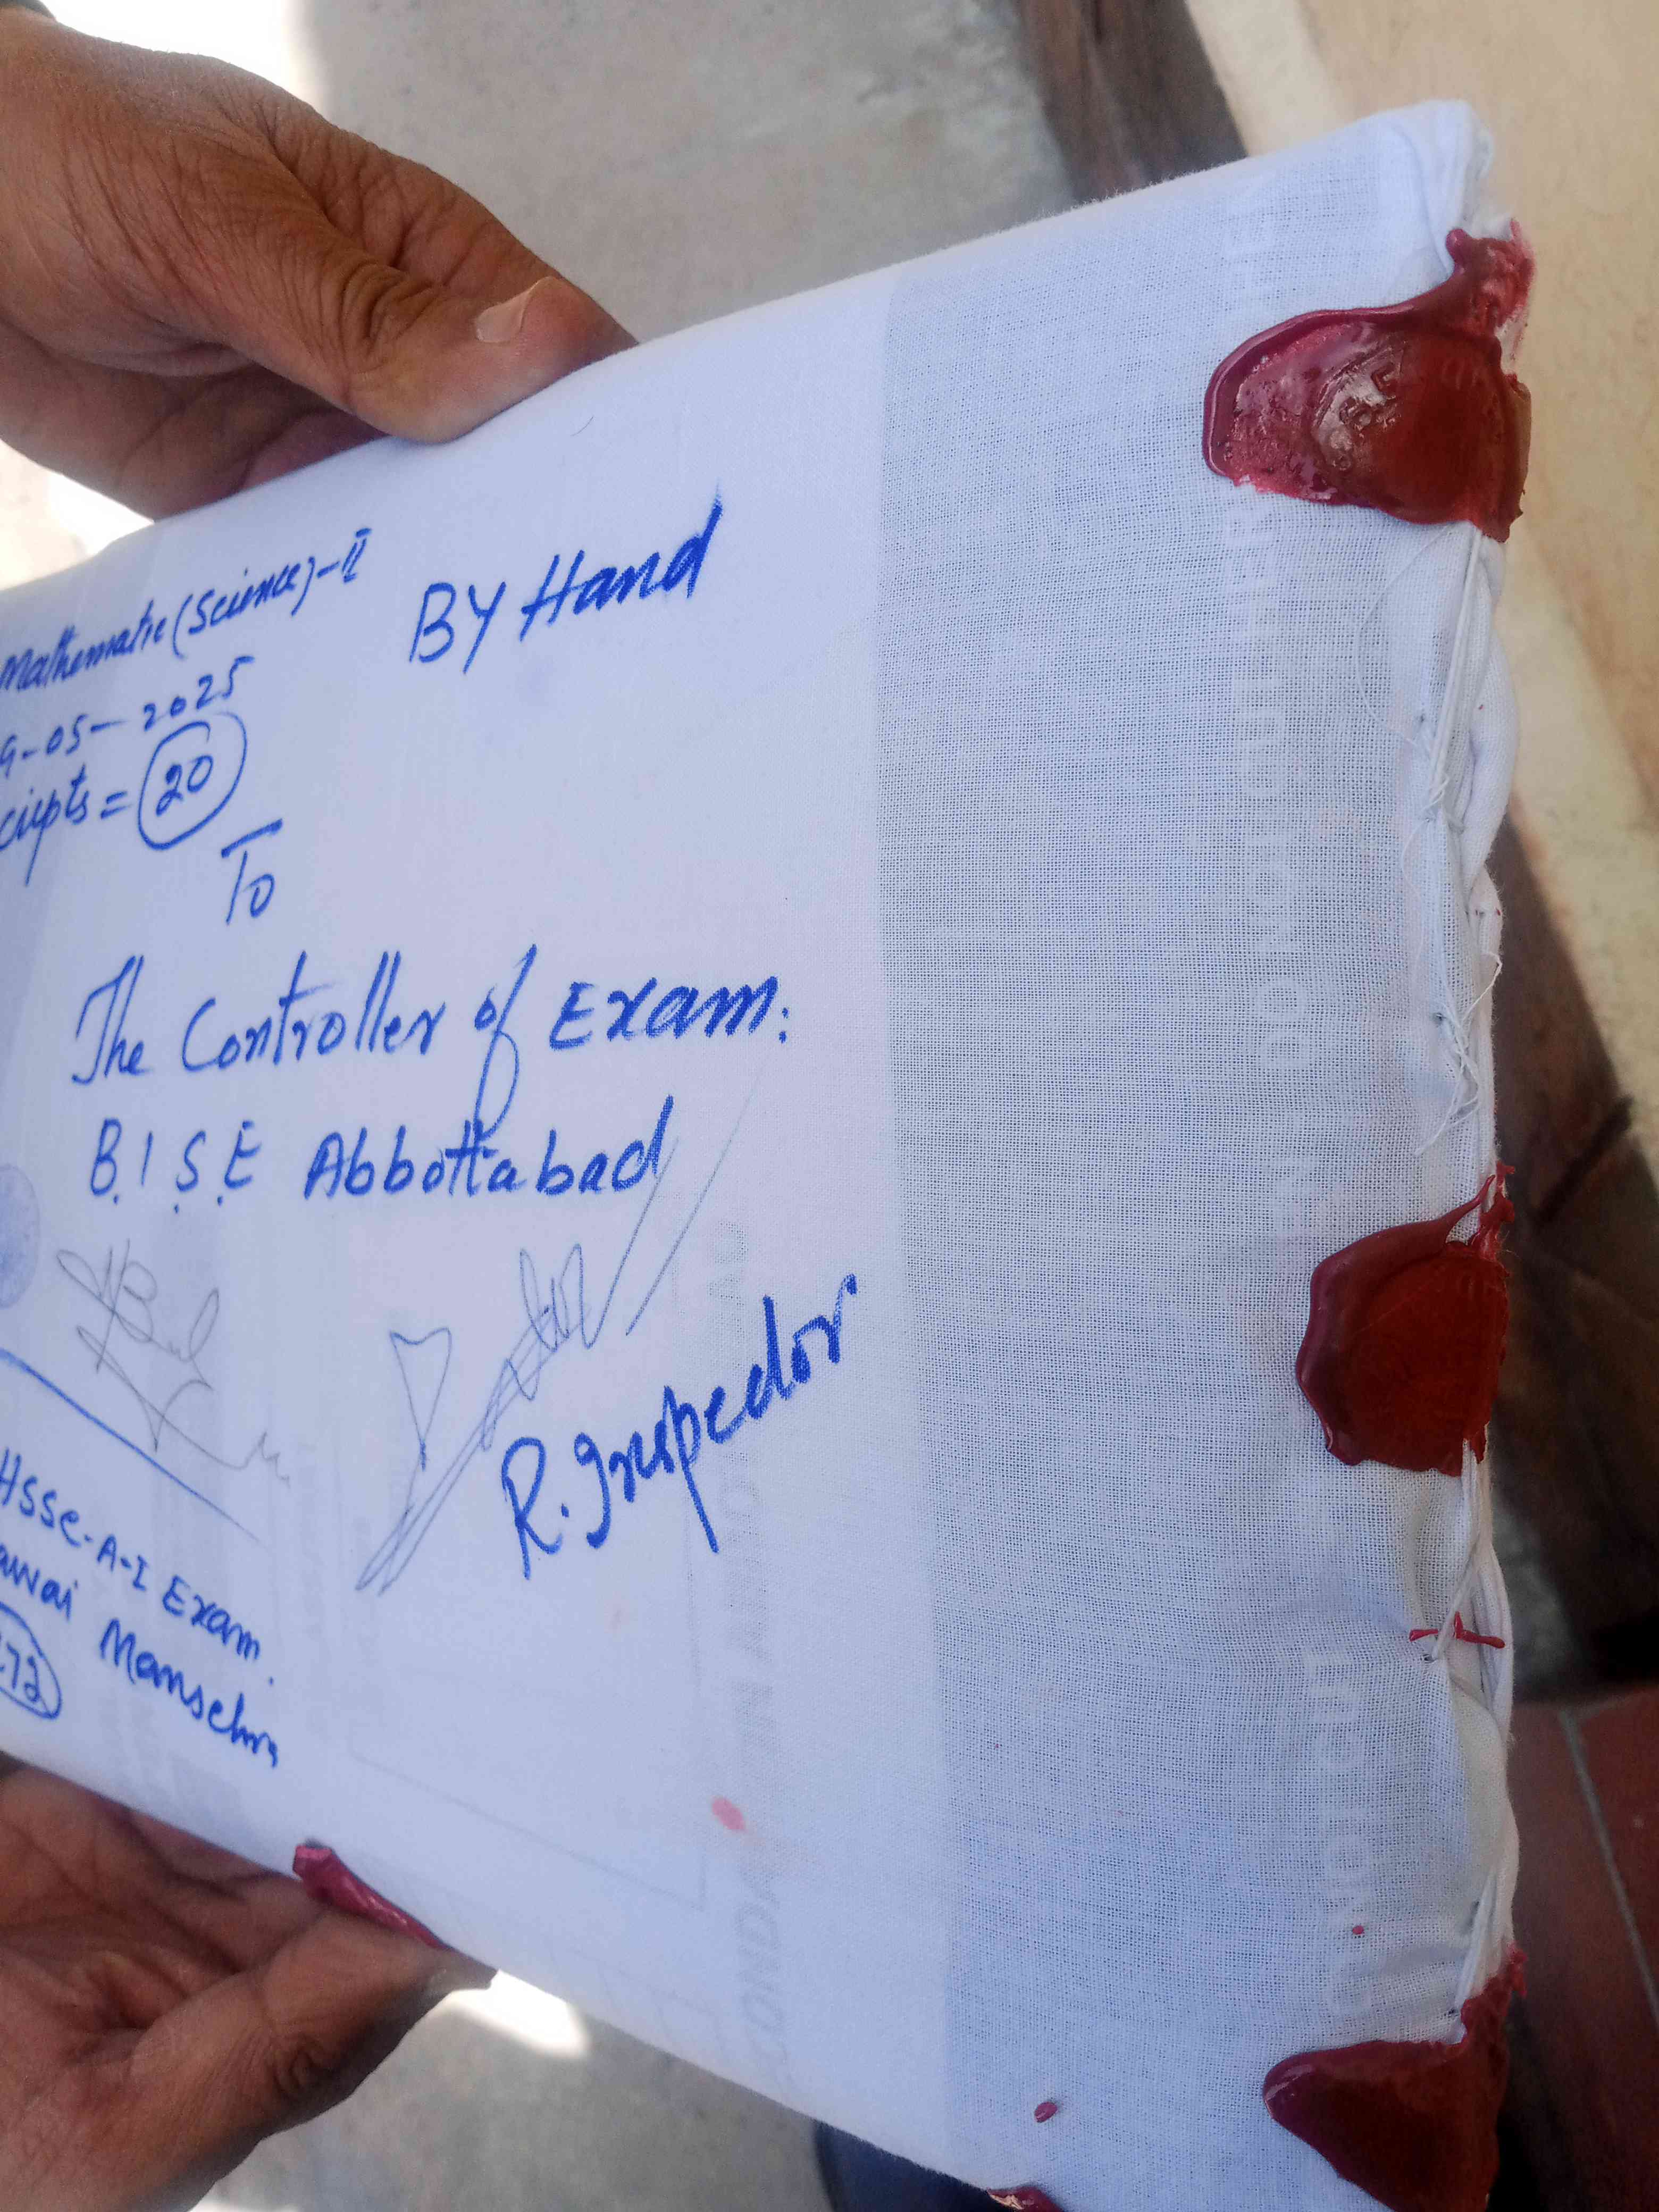 Mathematic (Science)-II
BY Hand
9-05-2025
cripts = 20
To
The Controller of Exam:
B.I.S.E Abbottabad
R. Inspector
HSSC-A-I Exam.
Mansehra
72